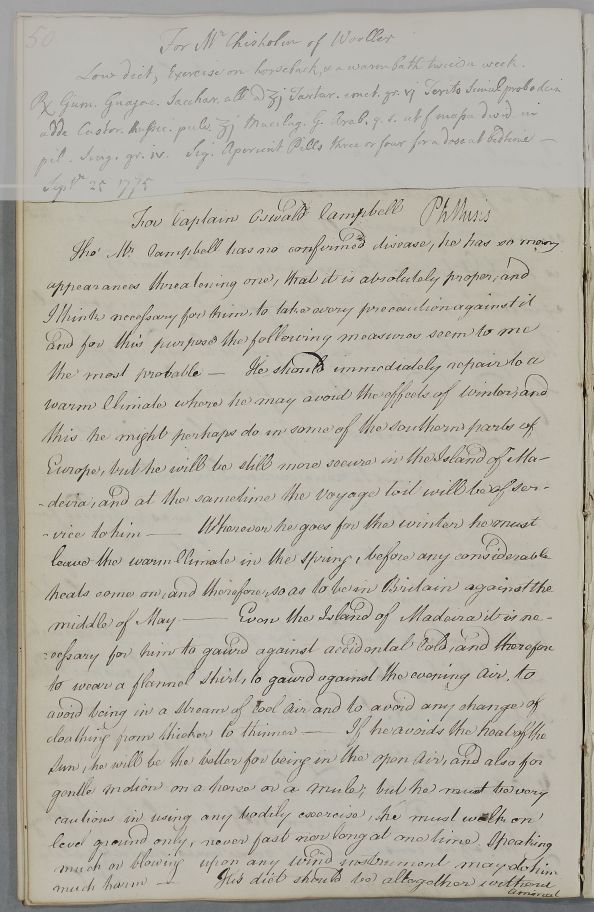 50
For Mr Chisholm of Wooller
Low diet, Exercise on horseback, & a warm bath twice a week.
Rx Gum. Guajac. Sacchar. alb. a ʒj Tartar. emet. gr. vj Terito simul probe dein
adde Castor. Russic. pulv. ʒj Mucilag. G. Arab. q. s. ut f massa divid. in
pil. Sing. gr. iv. Sig. Aperient Pills three or four for a dose at bedtime —
Septr. 25 1775
For Captain Oswald Campbell Phthisis
Tho' Mr. Campbell has no confirmed disease, he has so many
appearances threatening one, that it is absolutely proper, and
I think necessary for him, to take every precaution against it
and for this purpose the following measures seem to me
the most probable — He should immediately repair to a
warm Climate where he may avoid the effects of Winter, and
this he might perhaps do in some of the Southern parts of
Europe, but he will be still more secure in the Island of Ma-
-deira, and at the sametime the voyage toil will be of ser-
-vice to him — Wherever he goes for the winter he must
leave the warm Climate in the Spring, before any considerable
heats come on, and therefore, so as to be in Britain against the
middle of May — Even the Island of Madeira it is ne-
-cessary for him to gaurd against accidental Cold, and therefore
to wear a flannel shirt, to gaurd against the evening air, to
avoid being in a stream of Cool air and to avoid any change of
cloathing from thicker to thinner — If he avoids the heat of the
Sun, he will be the better for being in the open air, and also for
gentle motion on a horse or a mule; but he must be very
cautious in using any bodily exercise, he must walk on
level ground only, never fast nor long at one time. Speaking
much or blowing upon any wind instrument may do him
much harm — His diet should be altogether without
animal